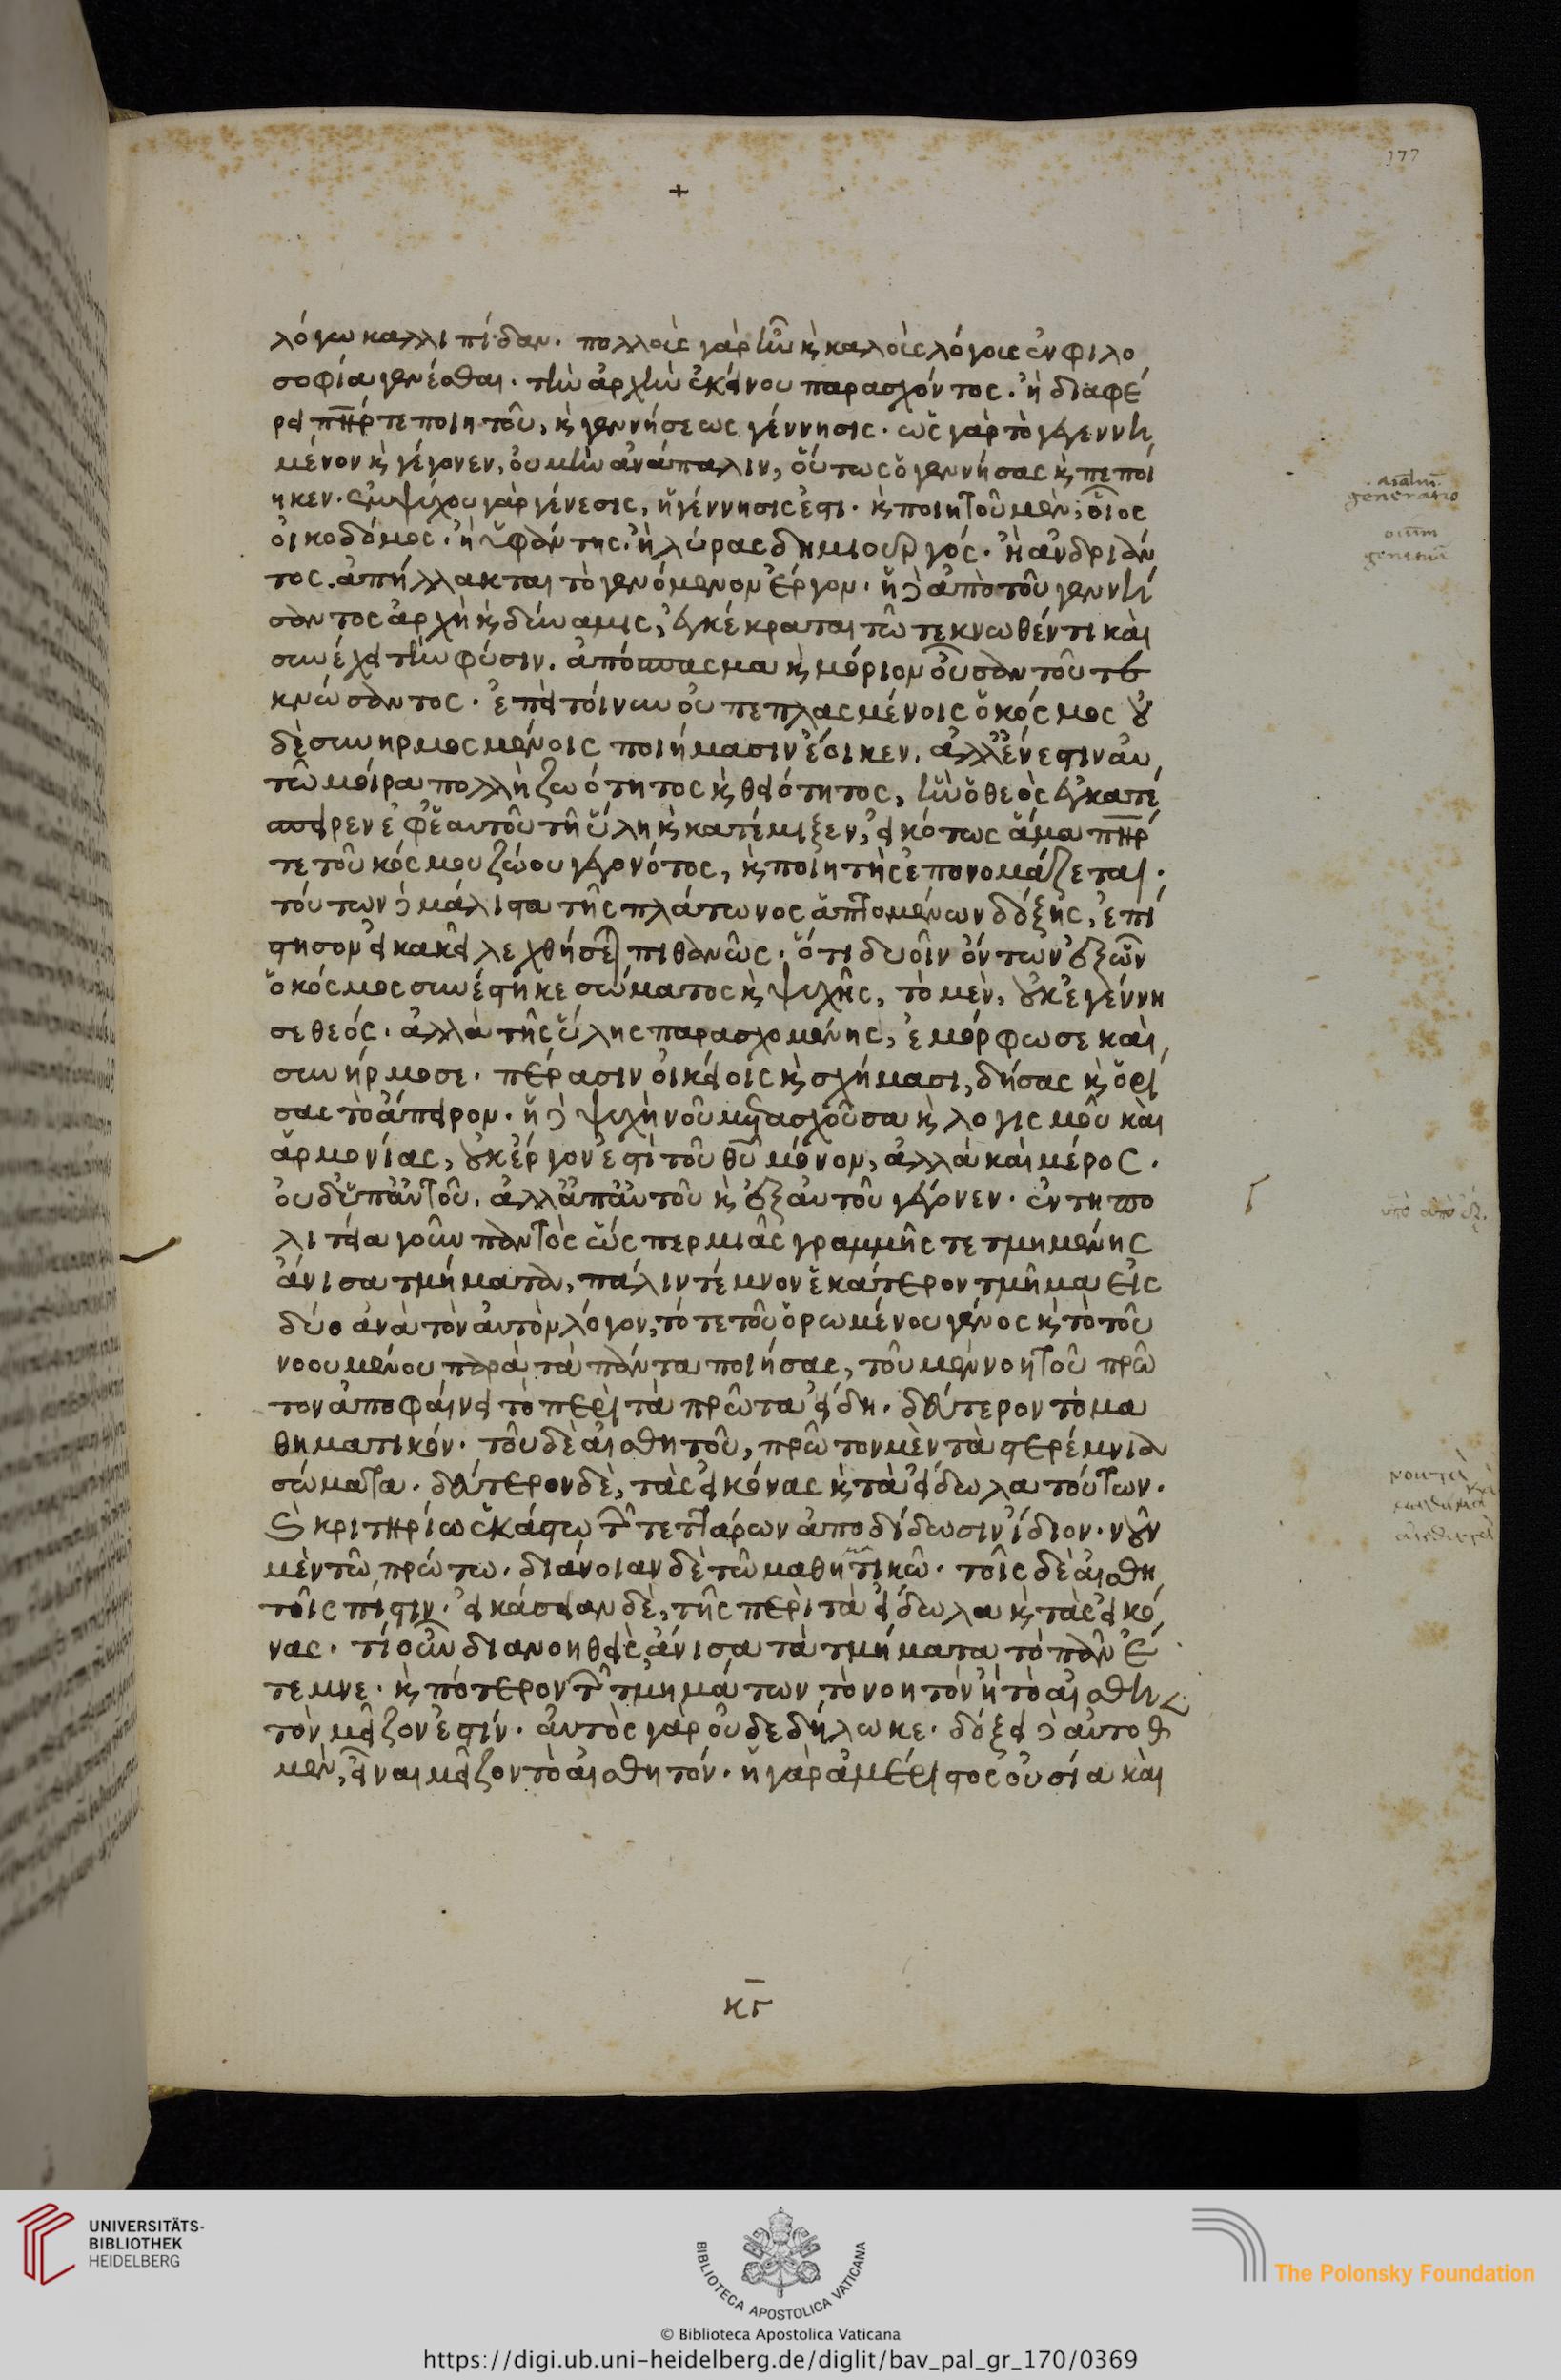 177
+
λόγω καλλιπίδαν. πολλοῖς γὰρ ἦν κ καλοῖς λόγοις ἐν φιλο
σοφία γενέσθαι. τὴν ἀρχὴν ἐκείνου παρασχόντος. ἢ διαφέ
ρει πηρ τε ποιητοῦ, κ γεννήσεως γέννησις. ὡς γὰρ τὸ γεγεννη
μένον κ γέγονεν, οὐ μὴν ἀνάπαλιν, οὕτως ὁ γεννήσας κ πεποί
ηκεν. ἐμψύχου γὰρ γένεσις, ἡ γέννησις ἐστι. κ ποιητοῦ μὲν, οἷος
οἰκοδόμος. ἢ ὑφάντης. ἢ λύρας δημιουργός. ἢ ἀνδριάν
τος. ἀπήλλακται τὸ γενόμενον ἔργον. ἡ δ ἀπὸ τοῦ γεννή
σαντος ἀρχὴ κ δύναμις, ἐγκέκραται τῶ τεκνωθέντι καὶ
συνέχει τὴν φύσιν. ἀπόσπασμα κ μόριον οὖσαν τοῦ τε
κνώσαντος. ἐπεὶ τοίνυν οὐ πεπλασμένοις ὁ κόσμος οὐ
δὲ συνηρμοσμένοις ποιήμασιν ἔοικεν. ἀλλ' ἔνεστιν αὐ
τῶ μοίρα πολλὴ ζωότητος κ θειότητος, ἣν ὁ θεὸς ἐγκατέ
σπειρεν ἐφ' ἑαυτοῦ τῆ ὕλη κ κατέμιξεν, εἰκότως ἅμα πηρ
τε τοῦ κόσμου ζώου γεγονότος, κ ποιητὴς ἐπονομάζεται.
τούτων δ μάλιστα τῆς πλάτωνος ἁπτομένων δόξης, ἐπί
στησον εἰ κακεῖ λεχθήσε πιθανῶς. ὅτι δυοῖν ὄντων ἐξ ὧν
ὁ κόσμος συνέστηκε σώματος κ ψυχῆς, τὸ μὲν, οὐκ ἐγέννη
σε θεός. ἀλλὰ τῆς ὕλης παρασχομένης, ἐμόρφωσε καὶ
συνήρμοσε. πέρασιν οἰκείοις κ σχήμασι, δήσας κ ὁρί
σας τὸ ἄπειρον. ἡ δ ψυχὴ νοῦ μετασχοῦσα κ λογισμοῦ καὶ
ἁρμονίας, οὐκ ἔργον ἐστὶ τοῦ θυ μόνον, ἀλλὰ καὶ μέρος.
οὐδ' ὑπ' αὐτοῦ. ἀλλ' ἀπ' αὐτοῦ κ ἐξ αὐτοῦ γέγονεν. ἐν τη πο
λιτεία γοῦν παντὸς ὥσπερ μιᾶς γραμμῆς τετμημένης
ἄνισα τμήματα, πάλιν τέμνον ἑκάτερον τμῆμα εἰς
δύο ἀνὰ τὸν αὐτὸν λόγον, τό τε τοῦ ὁρωμένου γένος κ τὸ τοῦ
νοουμένου παρὰ τὰ πάντα ποιήσας, τοῦ μὲν νοητοῦ πρῶ
τον ἀποφαίνει τὸ περὶ τὰ πρῶτα εἴδη. δεύτερον τὸ μα
θηματικόν. τοῦ δὲ αἰσθητοῦ, πρῶτον μὲν τὰ στερέμνια
σώματα. δεύτερον δὲ, τὰς εἰκόνας κ τὰ εἴδωλα τούτων.
κ κριτήριω ἑκάστω τῶν τεττάρων ἀποδίδωσιν ἴδιον. νοῦν
μὲν τῶ πρώτω. διάνοιαν δὲ τῶ μαθητικῶ. τοῖς δὲ αἰσθη
τοῖς πίστιν. εἰκάσειαν δὲ, τῆς περὶ τὰ εἴδωλα κ τὰς εἰκό
νας. τί οὖν διανοηθεὶς ἄνισα τὰ τμήματα τὸ πᾶν ἔ
τεμνε. κ πότερον τῶν τμημάτων τὸ νοητὸν ἢ τὸ αἰσθη
τὸν μεῖζον ἐστίν. αὐτὸς γὰρ οὐ δεδήλωκε. δόξει δ αὐτοθι
μὲν, εἶναι μεῖζον τὸ αἰσθητόν. ἡ γὰρ ἀμέριστος οὐσία καὶ
generatio
κγ
UNIVERSITÄTS-
BIBLIOTHEK
HEIDELBERG
BIBLIOTECA APOSTOLICA VATICANA
The Polonsky Foundation
© Biblioteca Apostolica Vaticana
https://digi.ub.uni-heidelberg.de/diglit/bav_pal_gr_170/0369